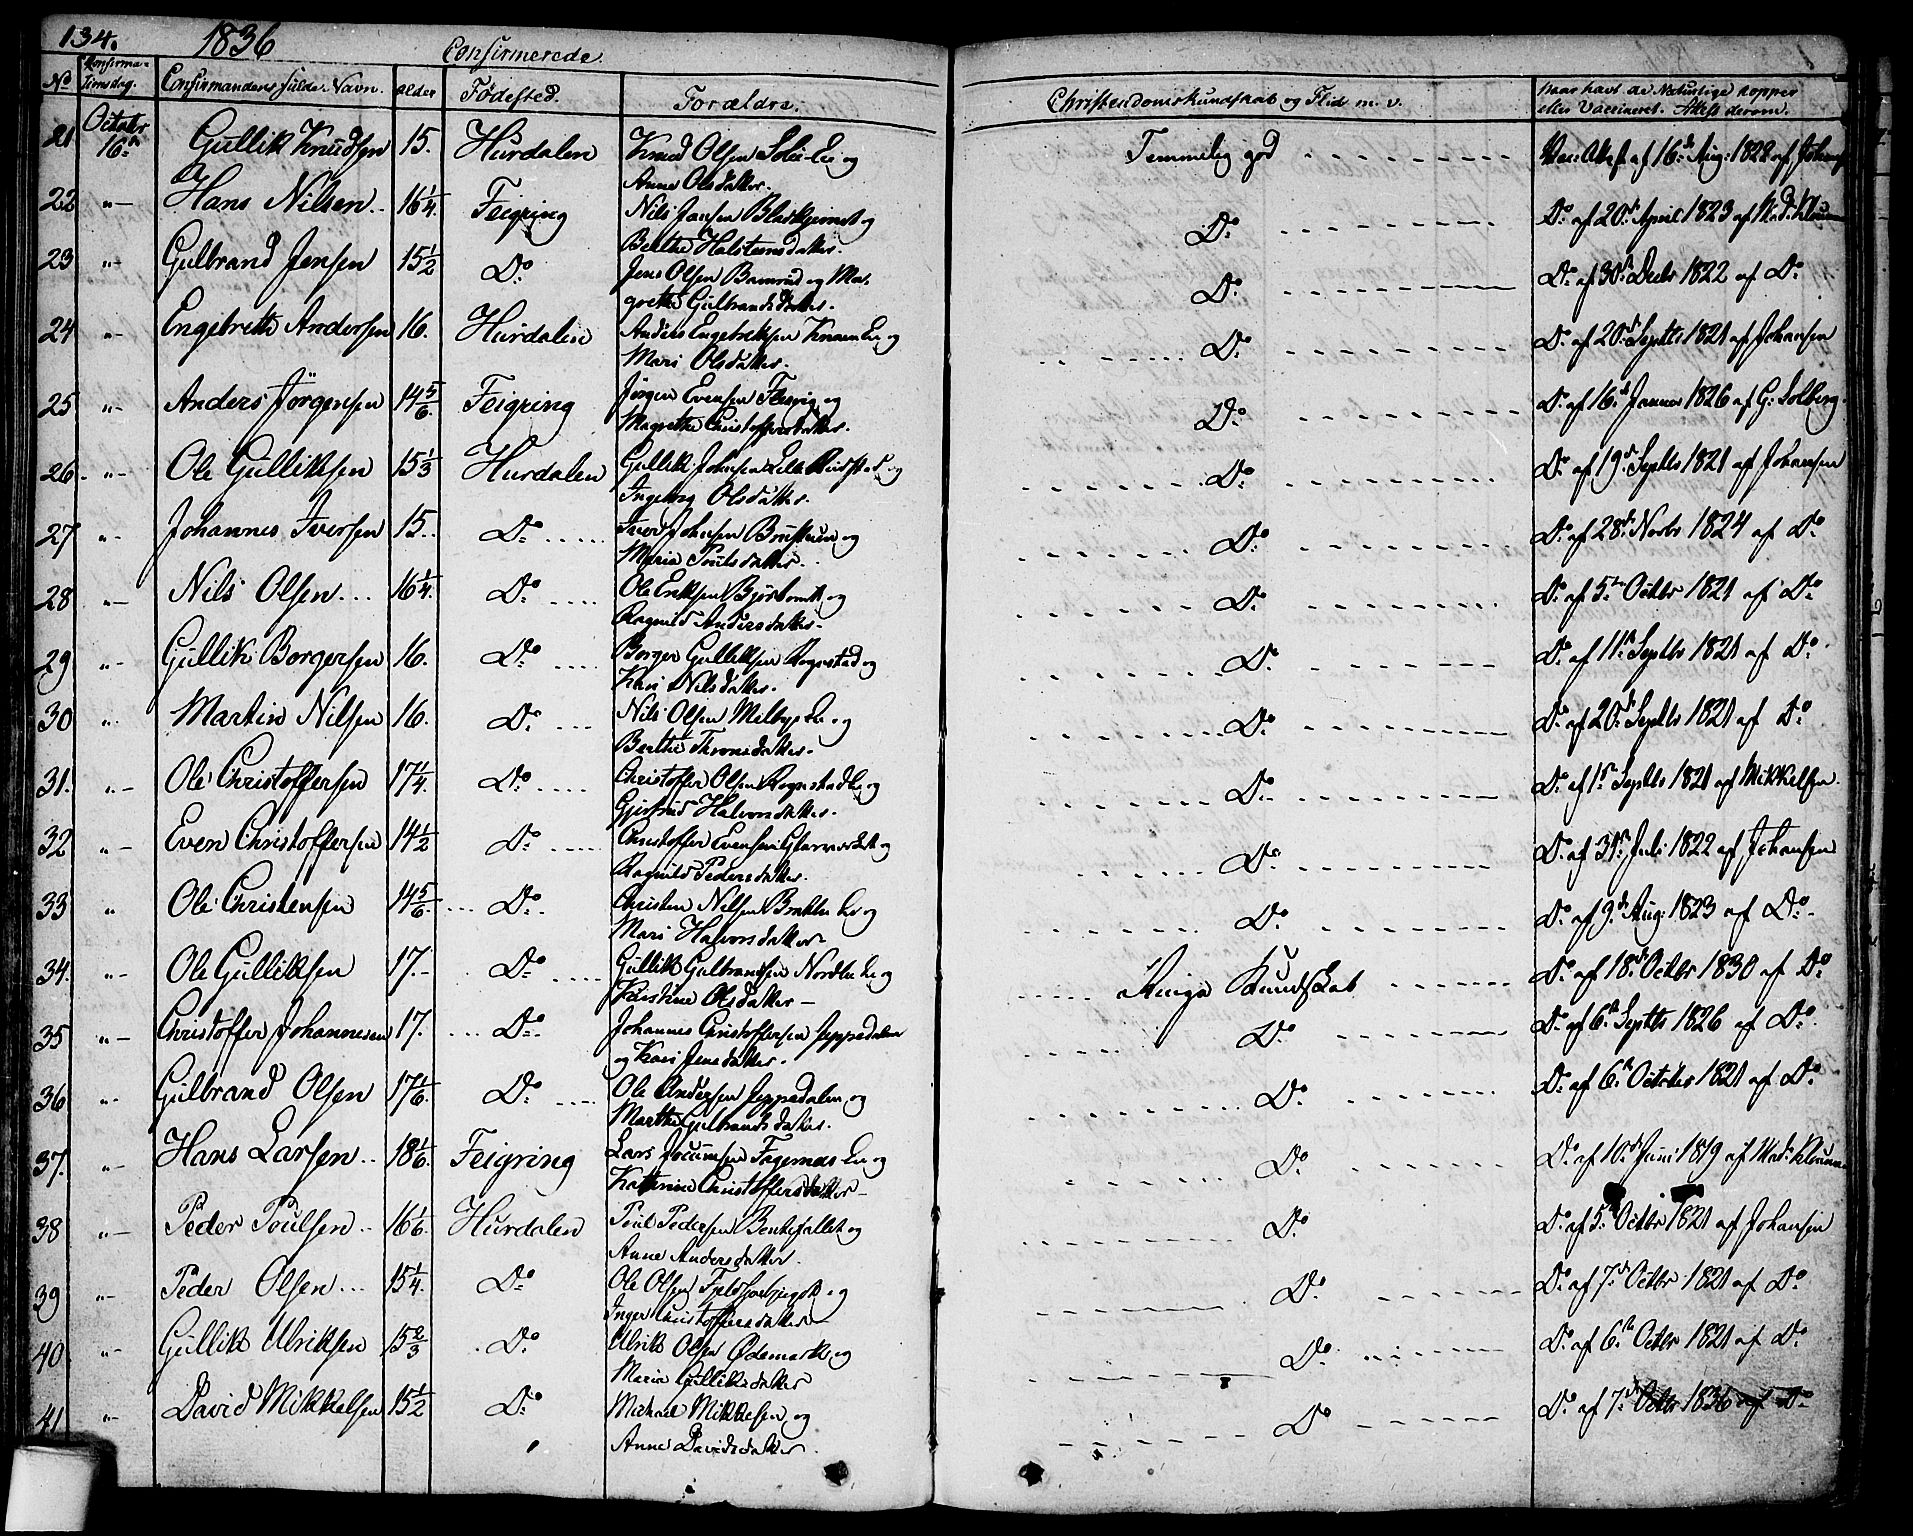 134. 1836 Confirmerede.
No Konfirma-tionsdag. Confirmandens fulde Navn. Alder Fødested. Forældre. Christendomskundskab og Flid m. v. Naar havt de Naturlige Kopper
eller Vaccineret. Attest derom.
21 October 16de Gullik Knudsen 15. Hurdalen Knud Olsen og Temmelig god Vac: Attest af 16de Aug: 1822 af
Anne Olsdatter.
22 "— Hans Nilsen 16 1/4. Feigring Nils Jansen og Do Do af 20de April 1823 af Mad:
Berthe Halstensdatter.
23 "— Gulbrand Jensen 15 1/2 Do Jens Olsen og Mar- Do Do af 30te Decbr 1822 af Do
grethe Gulbrandsdatter.
24 "— Engebreth Andersen 16. Hurdalen Anders Engebretsen og Do Do af 20de Septbr 1821 af Johansen
Mari Olsdatter.
25 "— Anders Jörgensen 14 5/6. Feigring Jörgen Evensen og Do Do af 16de Januar 1826 af G: Solberg.
Magrethe Christoffersdatter.
26. "— Ole Gulliksen 15 1/3 Hurdalen Gullik Johnsen Lille og Do Do af 19de Septbr 1821 af Johansen
Ingeborg Olsdatter.
27 "— Johannes Iversen 15. Do Iver Johnsen og Do Do af 28de Novbr 1824 af Do
Maria Poulsdatter.
28 "— Nils Olsen 16 1/4. Do Ole Eriksen og Do Do af 5te Octbr 1821 af Do
Ragnild Andersdatter.
29 "— Gullik Borgersen 16. Do Borger Gulliksen Rognstad og Do Do af 11te Septbr 1821 af Do
Kari Nilsdatter.
30 " Martin Nilsen 16. Do Nils Olsen Melbye og Do Do af 20de Septbr 1821 af Do
Berthe Thronsdatter.
31. "— Ole Christoffersen 17 1/4. Do Christoffer Olsen og Do Do af 1te Septbr 1821 af Mikkelsen
Gjertrud Halvorsdatter.
32 "— Even Christoffersen 14 1/2 Do Christoffer Evensen Glasværket og Do Do af 31te Juli 1822 af Johansen
Ragnild Pedersdatter.
33 " Ole Christensen 14 5/6. Do Christen Nilsen og Do Do af 9de Aug: 1823 af Do
Mari Halvorsdatter
34. "— Ole Gulliksen 17. Do Gullik Gulbrandsen og Ringe Kundskab Do af 18de Octbr 1830 af Do
Kirstine Olsdatter —
35 "— Christoffer Johannesen 17. Do Johannes Christoffersen Jeppedalen Do Do af 6te Septbr 1826 af Do
og Kari Jensdatter.
36 "— Gulbrand Olsen 17 1/6. Do Ole Andersen Jeppedalen og Do Do af 6te October 1821 af Do
Marthe Gulbrandsdatter.
37. "— Hans Larsen 18 1/6. Feigring Lars og Do Do af 10de Juni 1819 af Mad:
Katterine Christoffersdatter —
38 "— Peder Poulsen 16 1/6 Hurdalen Poul Pedersen og Do Do af 5te Octbr 1821 af Johansen
Anne Andersdatter
39 "— Peder Olsen 15 1/4. Do Ole Olsen og Do Do af 7de Octbr 1821 af Do
Inger Christoffersdatter
40 "— Gullik Ulriksen 15 2/3 Do Ulrik Olsen Ødemark og Do Do af 6te Octbr 1821 af Do
Maria Gulliksdatter
41 "— David Mikkelsen 15 1/2 Do Michael Mikkelsen og Do Do af 7de Octbr 1836 af Do
Anne Davidsdatter.